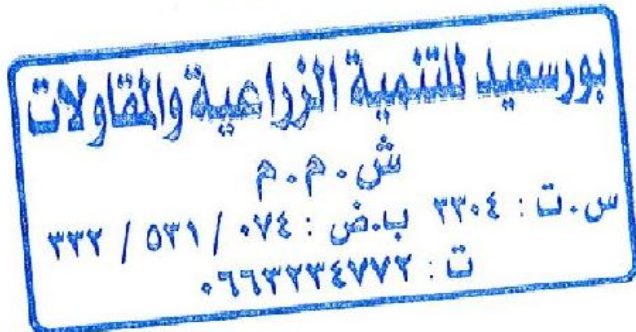 بورسعيد للتنمية الزراعية والمقاولات
ش.م.م
س.ت: ٣٣٠٤ ب.ض: ٠٧٤ / ٥٣١ / ٣٣٢
ت: ٠٦٦٣٢٣٤٧٧٢